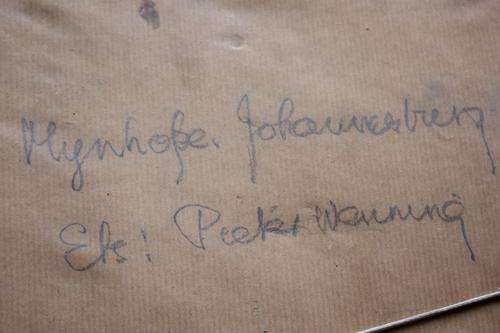 Mynhope. Johannesburg
Ets: Pieter Wenning